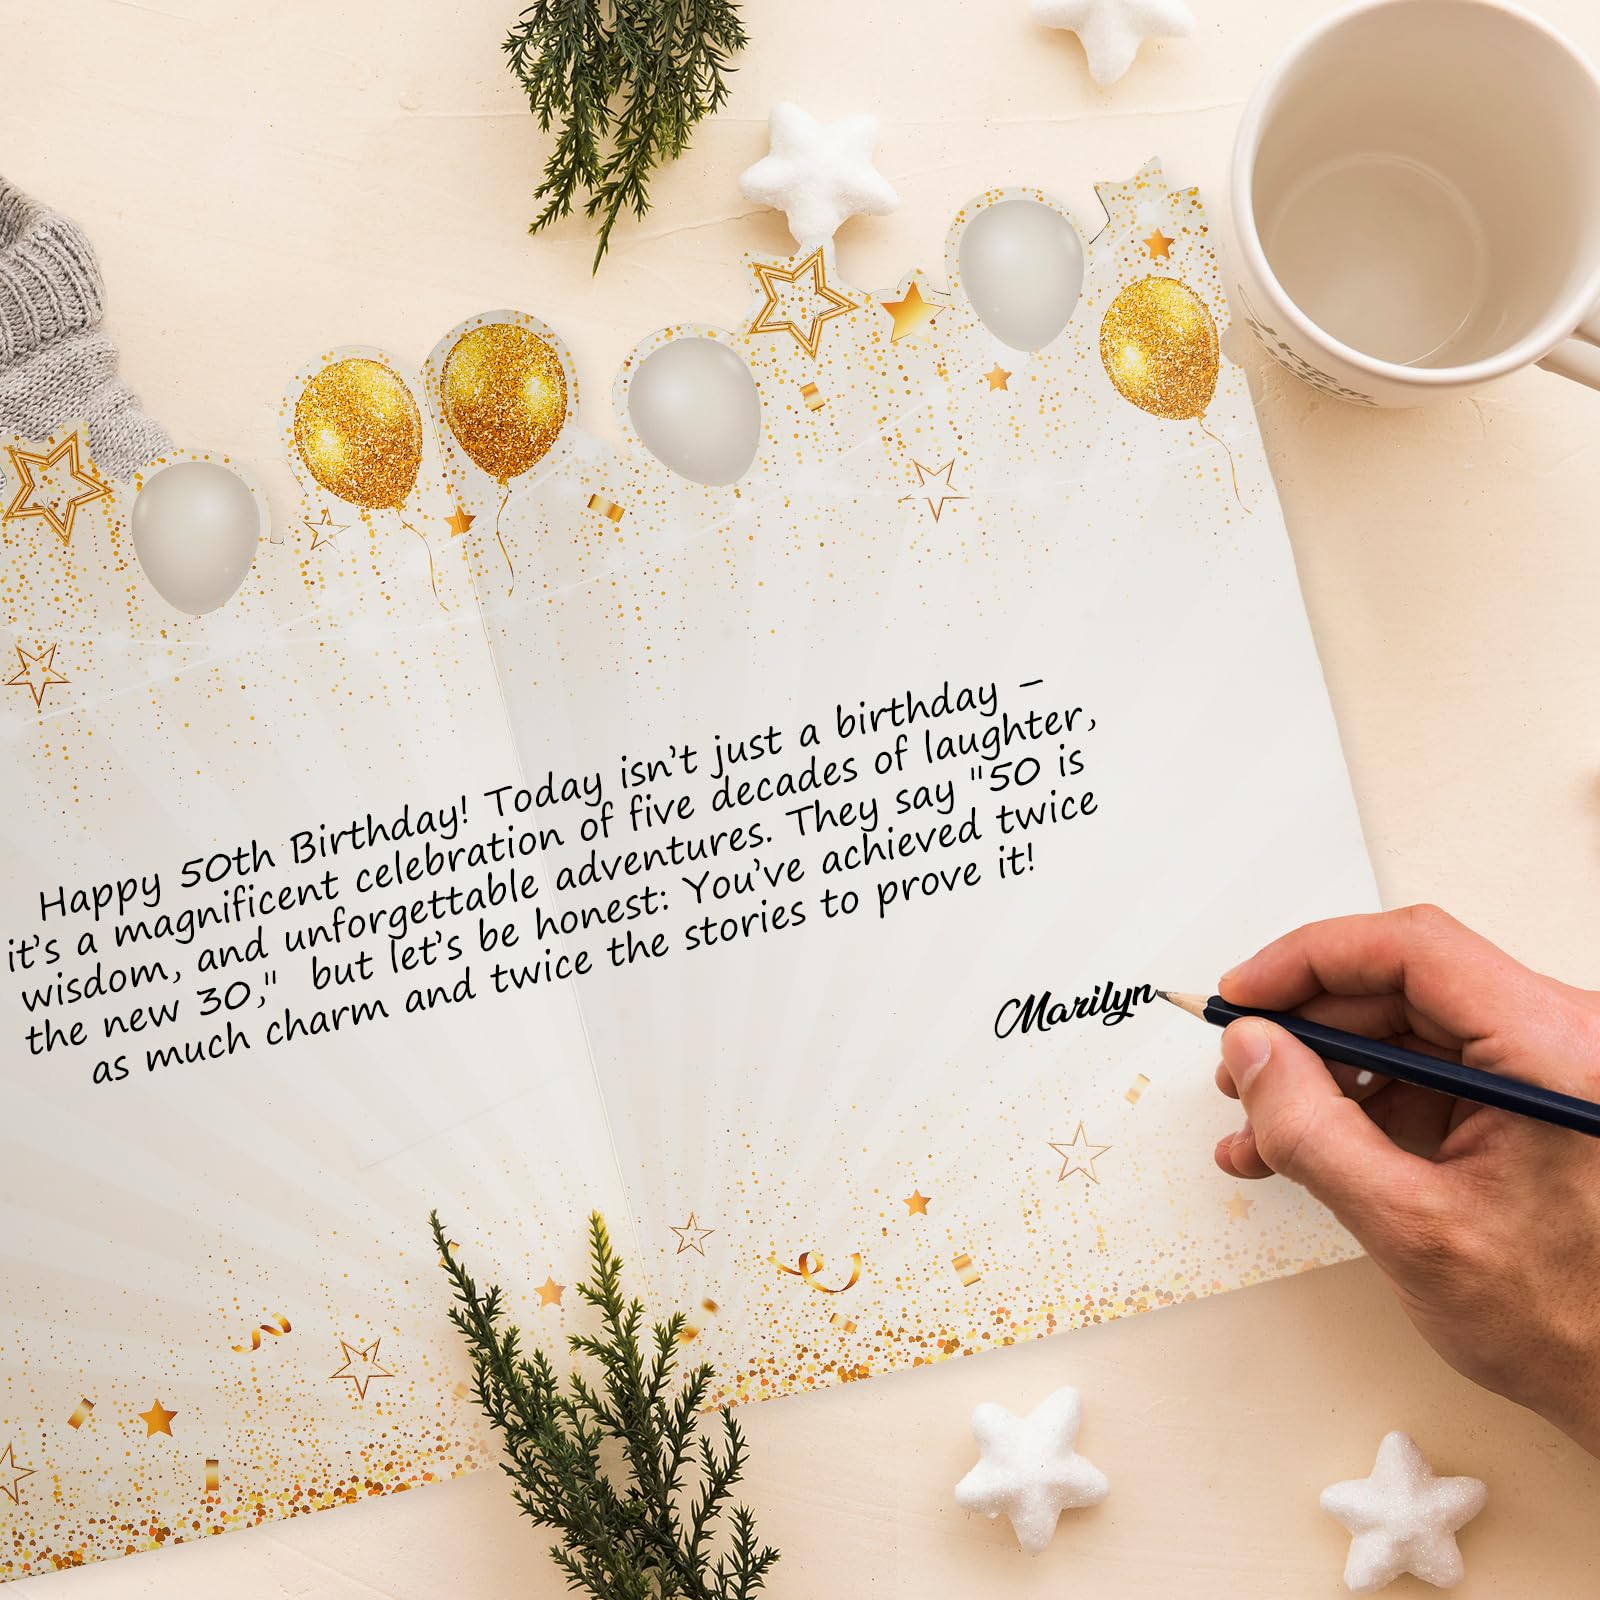 Happy 50th Birthday! Today isn't just a birthday –
it's a magnificent celebration of five decades of laughter,
wisdom, and unforgettable adventures. They say "50 is
the new 30,"  but let's be honest: You've achieved twice
as much charm and twice the stories to prove it!
Marilyn